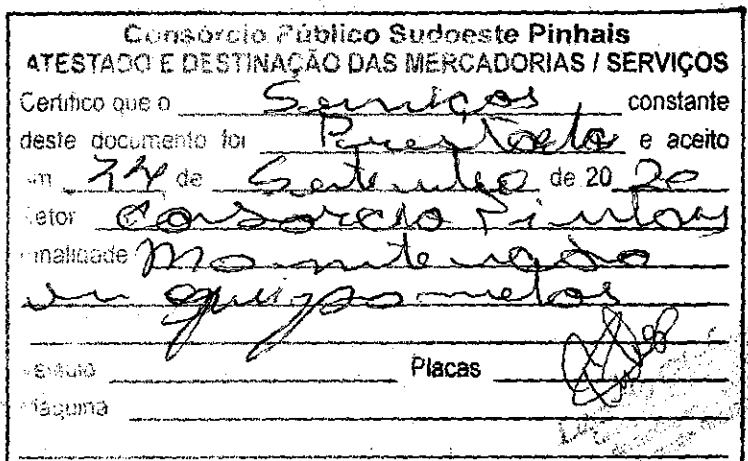 Consórcio Público Sudoeste Pinhais
ATESTADO E DESTINAÇÃO DAS MERCADORIAS / SERVIÇOS
Certifico que o Serviços constante
deste documento foi Prestado e aceito
em de Setembro de 2020
Setor Consorcio Pinhais
Finalidade Manutenção
em equipametos
Veículo Placas
Máquina